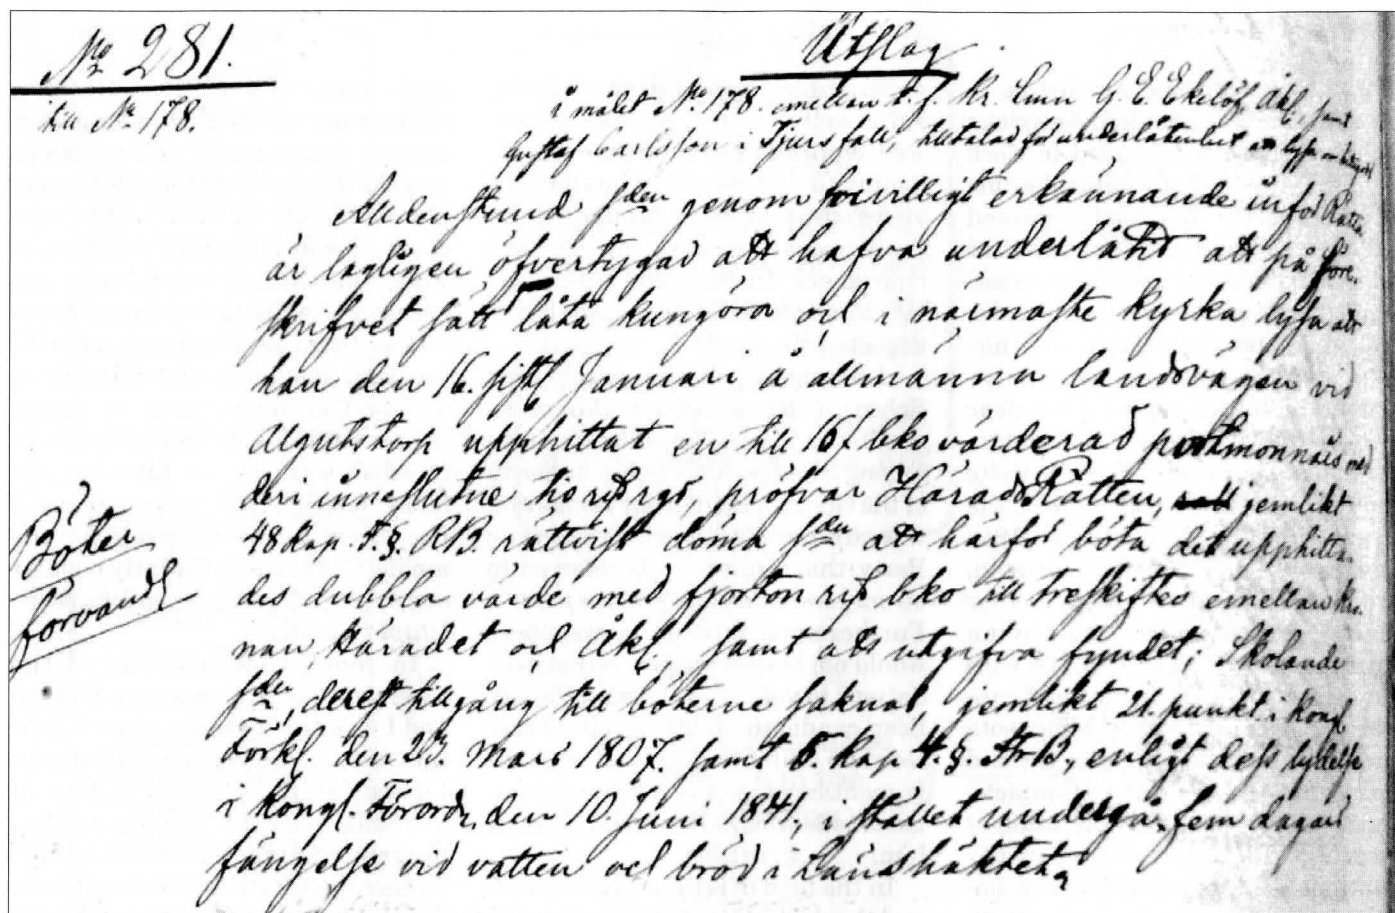 No 281.
till No 178.
Utslag
i målet No 178. emellan t. f. Kr. Länn G. E. Ekelöf, Åkl, samt
Gustaf Carlsson i Tjursfall, tilltalad för underlåtenhet att lysa
Alldenstund sden genom frivilligt erkännande inför Rätta
är lagligen öfvertygad att hafva underlåtit att på före-
skrifvet sätt låta kungöra och i närmaste kyrka lysa att
han den 16. sistl. Januari å allmänna landsvägen vid
Algutstorp upphittat en till 16 s bko värderad portmonnäs med
deri inneslutne tio rd rgs, pröfvar HäradsRätten, gemlikt
48 Kap. 5. §. RB. rättvist döma sden att härför böta det upphitta-
des dubbla värde med fjorton rd bko till treskiftes emellan Kro-
nan Häradet och Åkl. samt att utgifva fyndet; Skolande
sden, derest tillgång till böterne saknas, gemlikt 21. punkt. i Kongl.
Förkl. den 23. Mars 1807. samt 5. Kap 4. §. StrB., enligt dess lydelse
i Kongl. Förordn. den 10. Juni 1841, i stället undergå fem dagars
fängelse vid vatten och bröd i Länshäktet.
Böter
förvandl